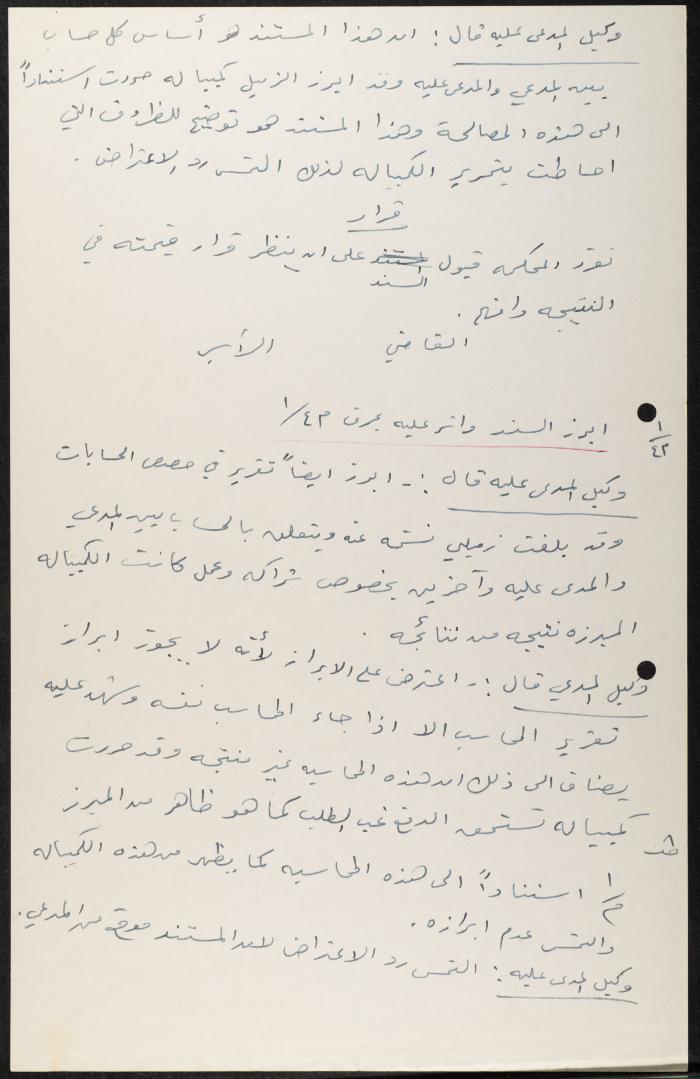 وكيل المدعى عليه قال : ان هذا المستند هو أساس كل حساب
بين المدعي والمدعى عليه وقد ابرز الزميل كمبياله حررت استناداً
الى هذه المصالحة وهذا المستند هو توضيح للظروف التي
احاطت بتحرير الكمبياله لذلك التمس رد الاعتراض .
قرار
تقرر المحكمه قبول السند على ان ينظر قرار قيمته في
النتيجه وافهم .
القاضي الكاتب
ابرز السند واشر عليه بحرف م ع٣/١
١/م ع٣
وكيل المدعى عليه قال :- ابرز ايضاً تقرير في حصص الحسابات
وقد بلغت زميلي نسخه عنه ويتعلق بالحساب بين المدعي
والمدعى عليه وآخرين بخصوص شراكه وعمل كانت الكمبياله
المبرزه نتيجه من نتائجه .
وكيل المدعي قال :- اعترض على الابراز لأنه لا يجوز ابراز
تقرير المحاسب الا اذا جاء المحاسب نفسه وشهد عليه
يضاف الى ذلك ان هذه المحاسبه غير منتجه وقد حررت
كمبياله تستحق الدفع غب الطلب كما هو ظاهر من المبرز
م/١ استناداً الى هذه المحاسبه كما يظهر من هذه الكمبياله
والتمس عدم ابرازه .
وكيل المدعى عليه : التمس رد الاعتراض لان المستند موقع من المدعي .